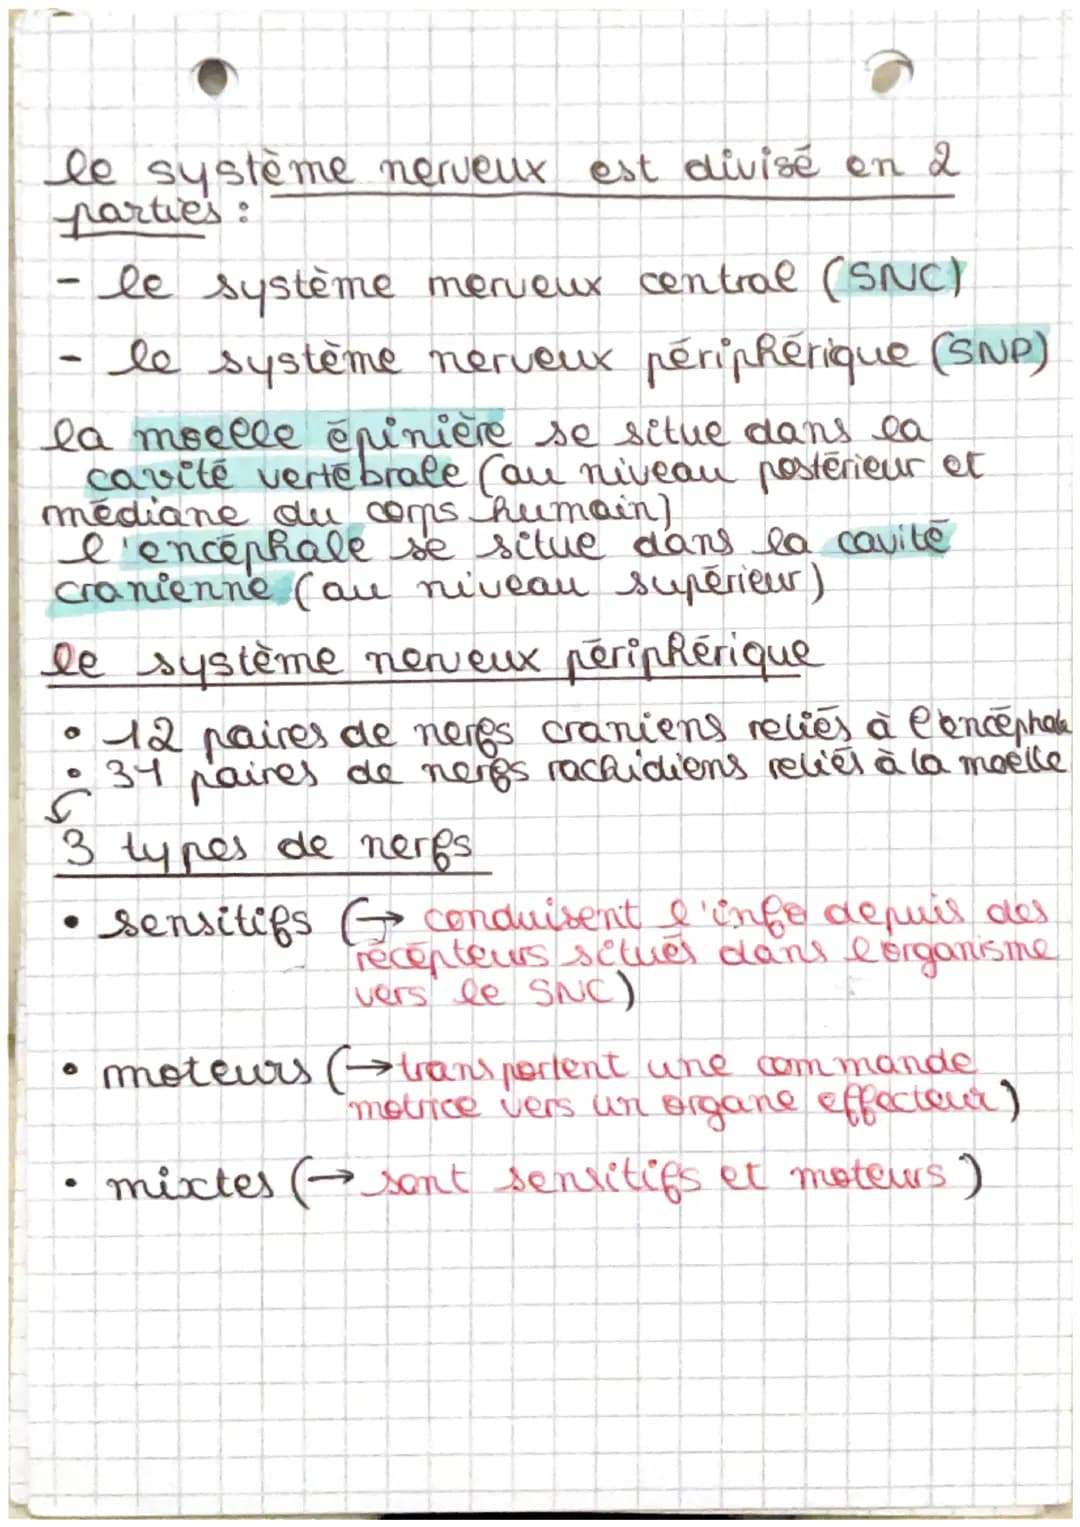 le système nerveux est divisé en 2
parties :
- le système nerveux central (SNC)
- le système nerveux périphérique (SNP)
la moelle épinière se situe dans la
cavité vertébrale (au niveau postérieur et
médiane du corps humain)
l'encéphale se situe dans la cavité
cranienne (au niveau supérieur)
le système nerveux périphérique
• 12 paires de nerfs craniens reliés à l'encéphale
• 31 paires de nerfs rachidiens reliés à la moelle
3 types de nerfs
• sensitifs (→ conduisent l'info depuis des
récepteurs situés dans l'organisme
vers le SNC)
• moteurs (→ transportent une commande
motrice vers un organe effecteur)
• mixtes (→ sont sensitifs et moteurs)